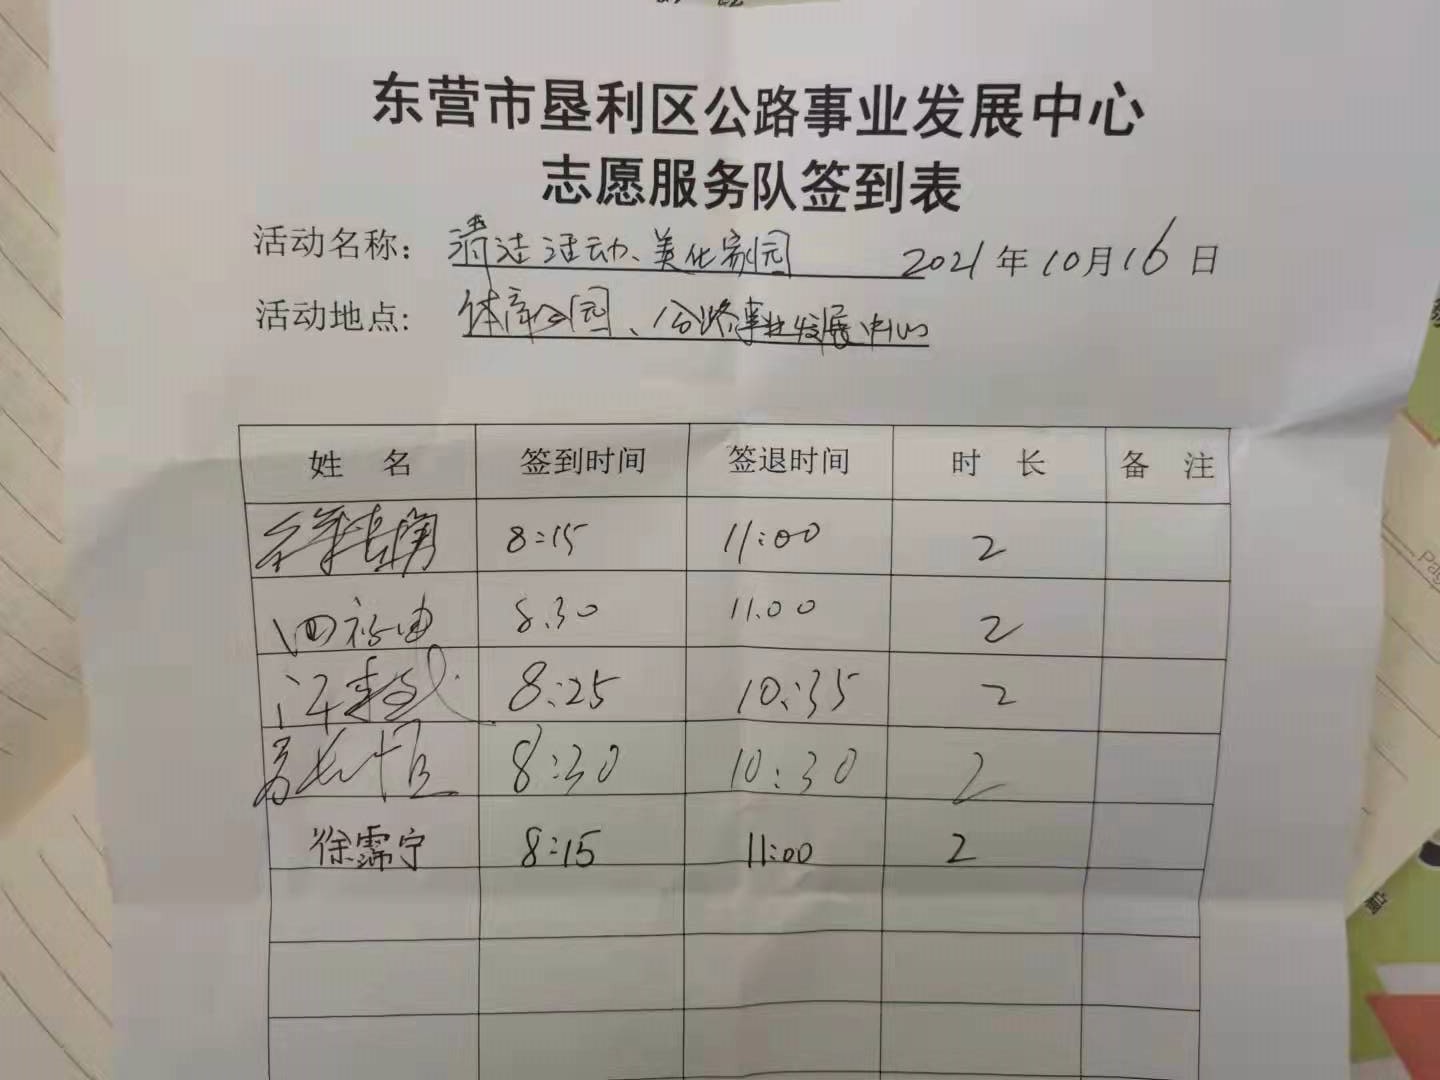 东营市垦利区公路事业发展中心
志愿服务队签到表
活动名称: 清洁活动、美化家园 2021年10月16日
活动地点: 体育公园、公路事业发展中心
姓 名 签到时间 签退时间 时 长 备 注
8:15 11:00 2
8:30 11:00 2
8:25 10:35 2
8:30 10:30 2
徐霈宁 8:15 11:00 2